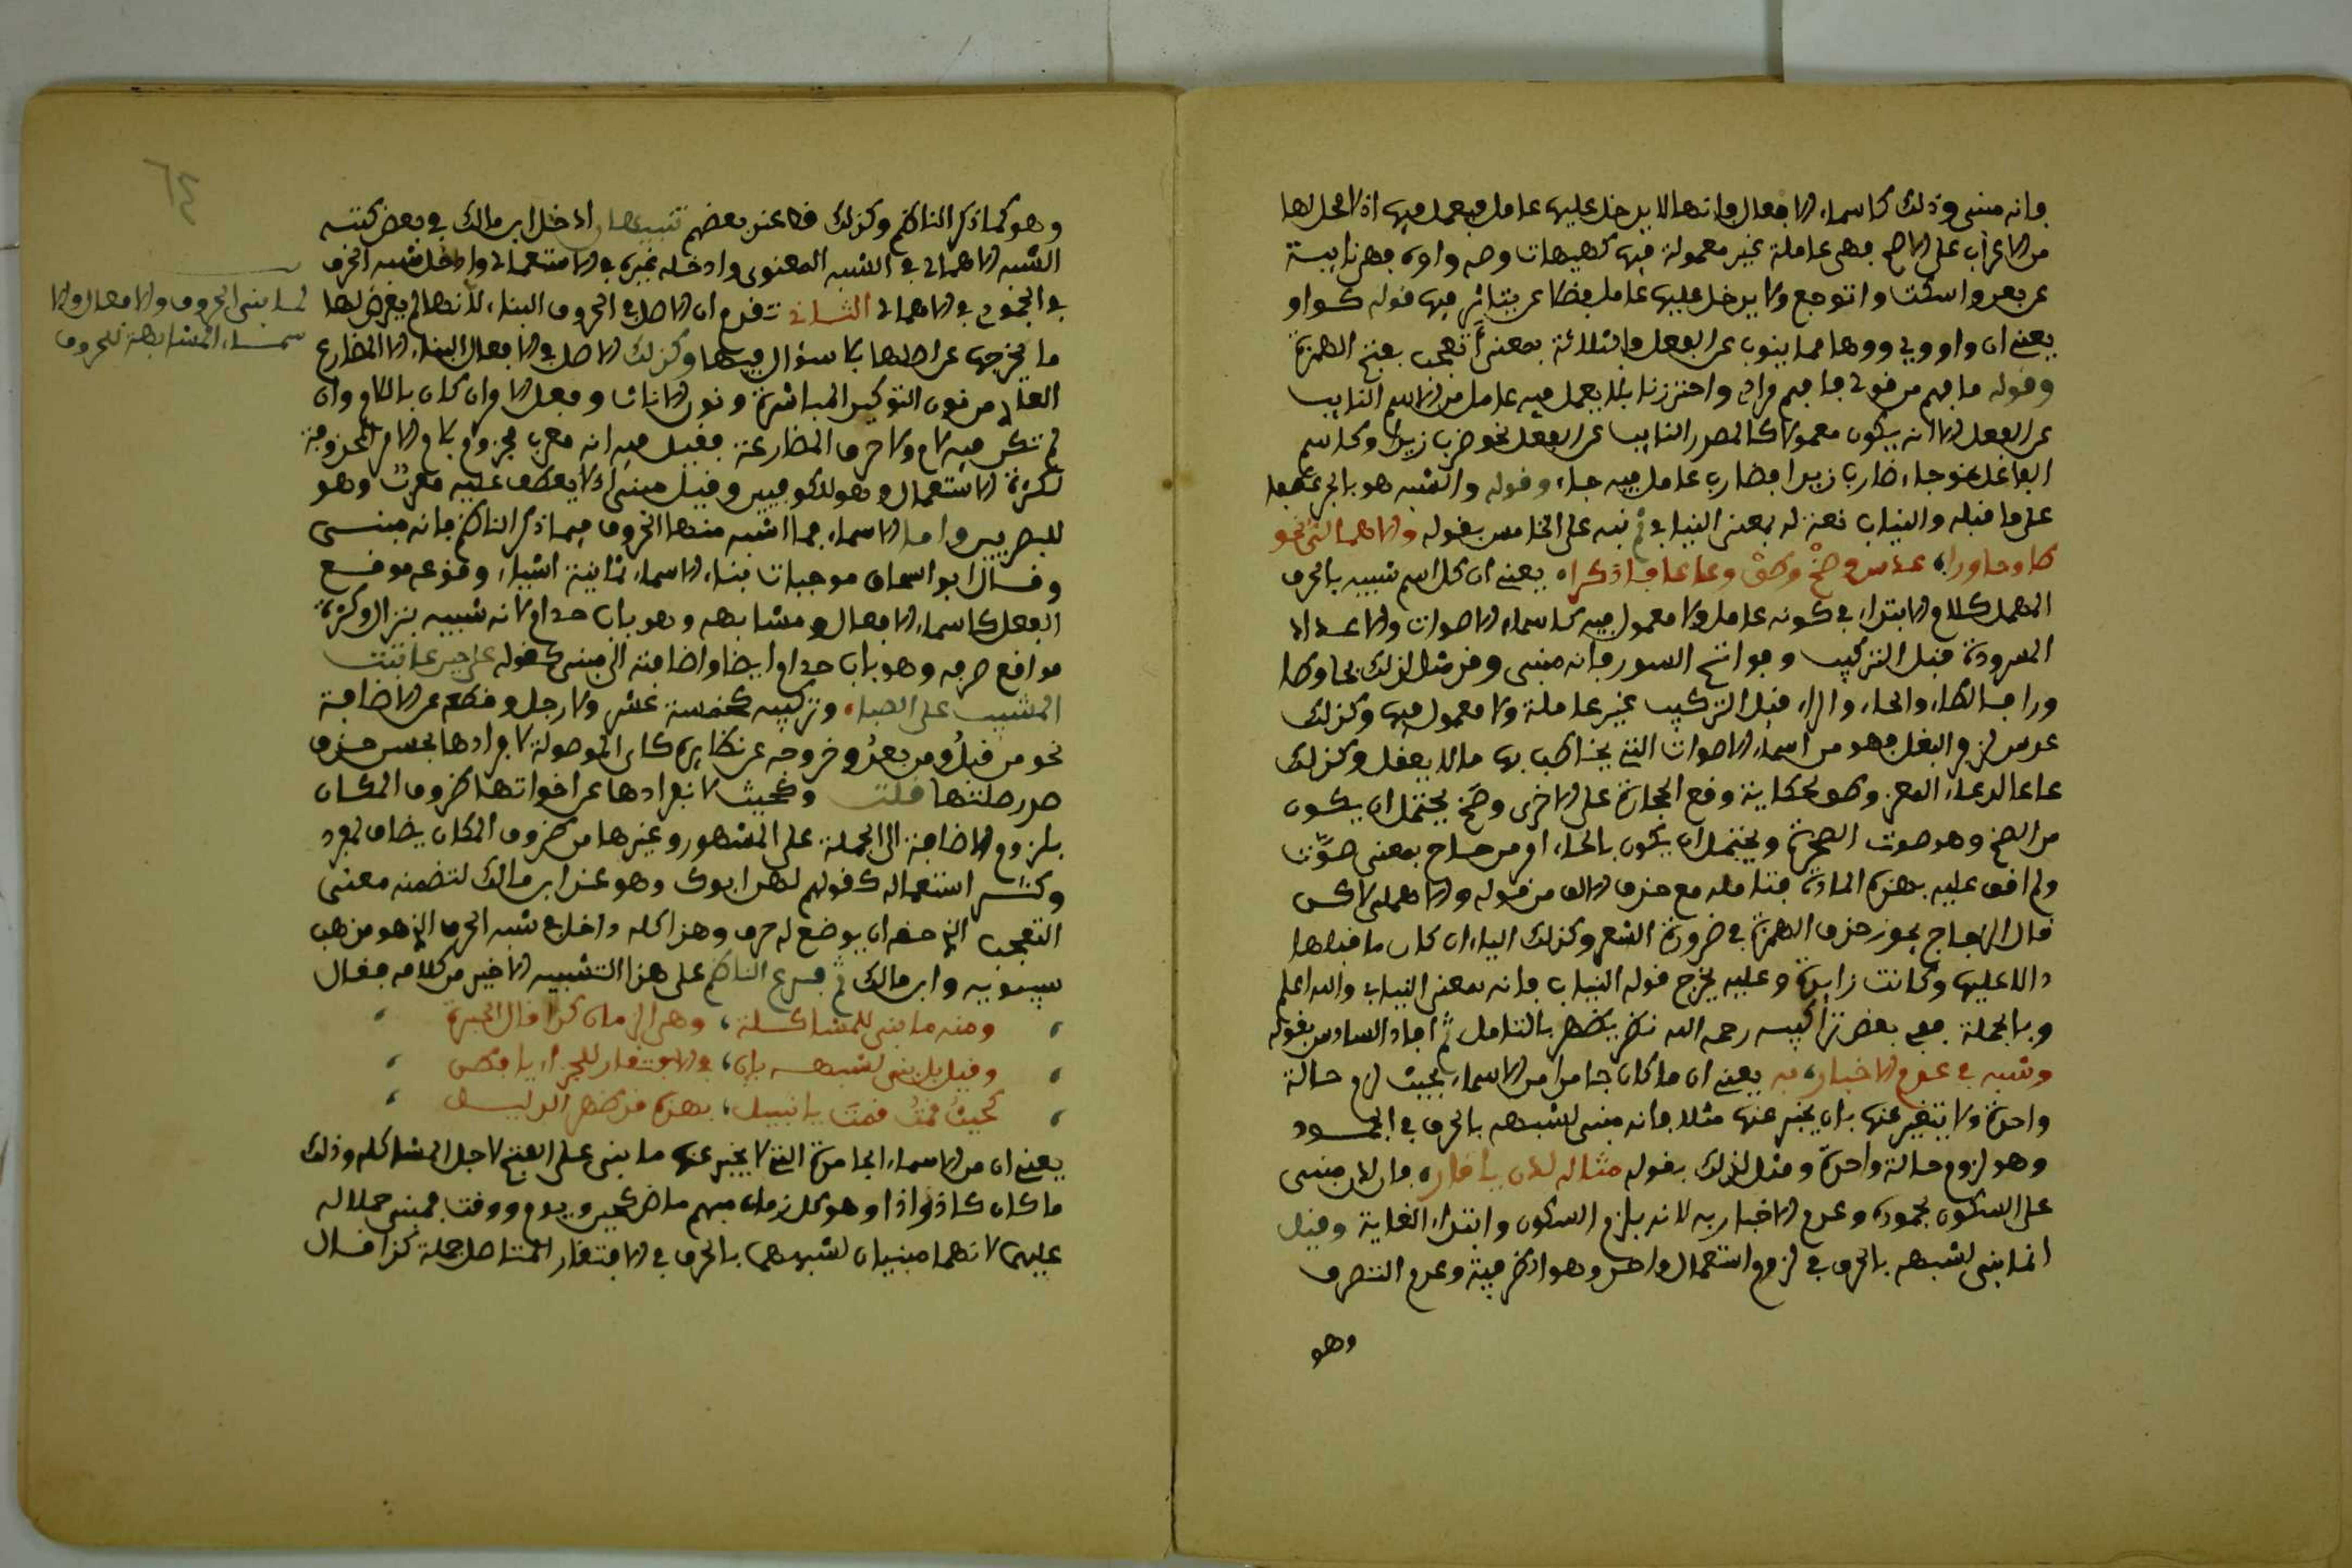 فانه مبنى وذلك كاسماء الافعال فانها لا يدخل عليها عامل فيعمل فيها اذ لا محل لها
من الاعراب على الاصح فهى عاملة غير معمولة فيها كهيهات وصه واوه فهن نايبة
عن بعد واسكت واتوجع ولا يدخل عليها عامل فضلا عن يتاثر فيها قوله كواو
يعنى ان وا ووى وها مما ينوب عن الفعل والثلاثة بمعنى أتعجب بفتح الهمزة
وقوله ما بهم من قولى ما بهم واحترزنا بلا يعمل فيه عامل من الاسم النايب
عن الفعل الا انه يكون معمولا كالمصدر النايب عن الفعل نحو ضربا زيدا وكاسم
الفاعل نحو جاء ضاربا زيدا فضاربا عامل فيه جاء وقوله والشبه هو بالجر عطفا
على ما قبله والنياب نعت له بمعنى النيابى ثم نبه على الخامس بقوله والاهمالى نحو
طا وحا ورا، عدس وصخ وطق وعا عا فاذكرا، يعنى ان كل اسم شبيه بالحرف
المهمل كلام الابتداء فى كونه عاملا ولا معمول فيه كاسماء الاصوات والاعداد
المسرودة قبل التركيب وفواتح السور فانه مبنى وقد مثل لذلك بحا وطا
ورا فالطاء والحاء والراء قبل التركيب غير عاملة ولا معمول فيها وكذلك
عدس لزجر البغل فهو من اسماء الاصوات التى يخاطب بها مالا يعقل وكذلك
عا عا لدعاء المعز وطق لحكاية وقع الحجارة على الاخرى وصخ يحتمل ان يكون
من الصخ وهو صوت الصخرة ويحتمل ان يكون بالحاء او من صاح بمعنى صوّت
ولم اقف عليه بهذه المادة فتامله مع حذف الالف من قوله والاهملى لاكن
قال الزجاج يجوز حذف الهمزة فى ضرورة الشعر وكذلك الياء ان كان ما قبلها
دالا عليها وكانت زايدة وعليه يخرج قوله النياب فانه بمعنى النيابى والله اعلم
وبالجملة ففى بعض تراكيبه رحمه الله نظر يظهر بالتامل ثم افاد السادس بقوله
وشبه فى عدم الاخبار، به يعنى ان ما كان جامدا من الاسماء بحيث لزم حالة
واحدة ولا يتغير عنها بان يخبر عنها مثلا فانه مبنى لشبهه بالحرف فى الجمود
وهو لزوم حالة واحدة ومثل لذلك بقوله مثاله لدن يا قار، فان لدن مبنى
على السكون لجموده وعدم الاخبار به لانه يلزم السكون وابتداء الغاية وقيل
انما بنى لشبهه بالحرف فى لزوم استعمال واحد وهو الظرفية وعدم التصرف
وهو
٦٤
وهو كما ذكر الناظم وكذلك قط عند بعضهم تنبيهان ادخل ابن مالك فى بعض كتبه
الشبه الاهمالى فى الشبه المعنوى وادخله غيره فى الاستعمالى وادخل شبه الحرف
فى الجمود فى الاهمالى الثانى تقدم ان الاصل فى الحروف البناء لانها لم يعرض لها
ما يخرجها عن اصلها بلا سؤال فيها وكذلك الاصل فى الافعال البناء الا المضارع
العار من نون التوكيد المباشرة ونون الاناث وفعل الامر ان كان باللام وان
لم تكن فيه لام ولا حرف المضارعة فقيل فيه انه معرب مجزوم بلام الامر المحذوفة
لكثرة الاستعمال وهو للكوفيين وقيل مبنى اذ لا يعطف عليه معرب وهو
للبصريين واما الاسماء فما اشبه منها الحروف فيما ذكر الناظم فانه مبنى
وقال ابو اسحاق موجبات بناء الاسماء ثمانية اشياء وقوعه موقع
الفعل كاسماء الافعال ومشابهه وهو باب حذام لانه شبيه بنزال وكثرة
موانع صرفه وهو باب حذام ايضا واضافته الى مبنى كقوله على حين عاتبت
المشيب على الصبا، وتركيبه كخمسة عشر ولا رجل وقطعه عن الاضافة
نحو من قبل ومن بعد وخروجه عن نظايره كاى الموصولة لافرادها بحسن حذف
صدر صلتها قلت وكحيث لانفرادها عن اخواتها ظروف المكان
بلزوم الاضافة الى الجملة على المشهور وغيرها من ظروف المكان يضاف لمفرد
وكثر استعماله كقولهم لهى ابوك وهو عند ابن مالك لتضمنه معنى
التعجب الذى حقه ان يوضع له حرف وهذا كله داخل فى شبه الحرف الذى هو مذهب
سيبويه وابن مالك ثم فرع الناظم على هذا التشبيه الاخير من كلامه فقال
ومنه ما بنى للمشاكلة، وهى الزمان كذا قال الخيرة
وقيل بل بنى لشبهه بان، فى الافتقار للجزاء
كحيث قمتُ قمتَ يا نبيل، بهذه قد ظهر الدليل
يعنى ان من الاسماء الجامدة التى لا يخبر عنها ما بنى على الفتح لاجل المشاكلة وذلك
ما كان كاذ واذا وهو كل زمان مبهم ماض كحين ويوم ووقت فبنى حملا له
عليهما لانهما مبنيان لشبههما بالحرف فى الافتقار المتاصل لجملة كذا قال
لما بنى الحروف والافعال والا
سماء المشابهة للحروف